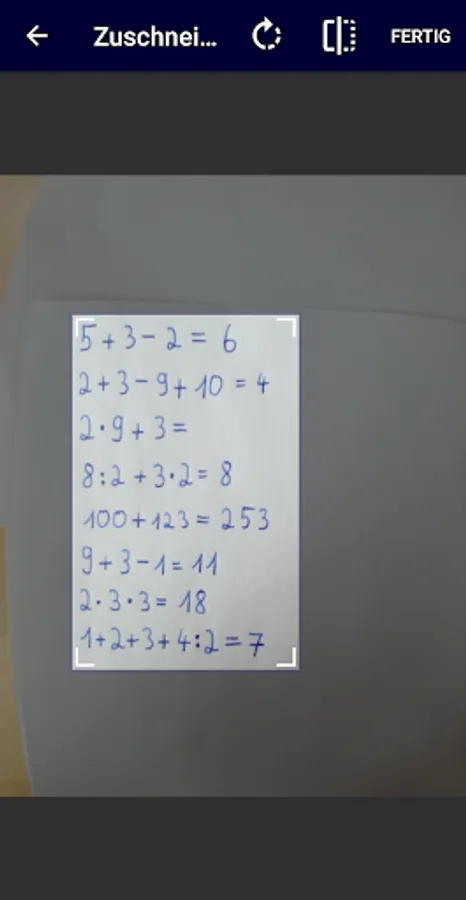 Zuschnei...
FERTIG
5+3-2=6
2+3-9+10=4
2·9+3=
8:2+3·2=8
100+123=253
9+3-1=11
2·3·3=18
1+2+3+4:2=7